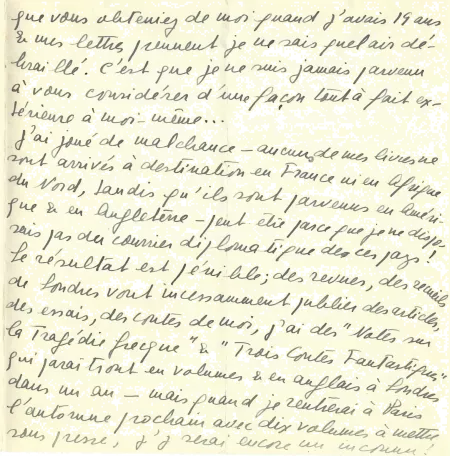 que vous obteniez de moi quand j'avais 19 ans
& mes lettres prennent je ne sais quel air dé-
braillé. C'est que je ne suis jamais parvenu
à vous considérer d'une façon tout à fait ex-
térieure à moi-même...
J'ai joué de malchance – aucuns de mes livres ne
sont arrivés à destination en France ni en Afrique
du Nord, tandis qu'ils sont parvenus en Améri-
que & en Angleterre – peut être parce que je ne dispo-
sais pas du courrier diplomatique de ces pays !
Le résultat est pénible ; des revues, des recueils
de Londres vont incessamment publier des articles,
des essais, des contes de moi, j'ai des "Notes sur
la Tragédie grecque" & "Trois Contes Fantastiques"
qui paraîtront en volumes & en anglais à Londres
dans un an – mais quand je rentrerai à Paris
l'automne prochain avec dix volumes à mettre
sous presse, j'y serai encore un inconnu !